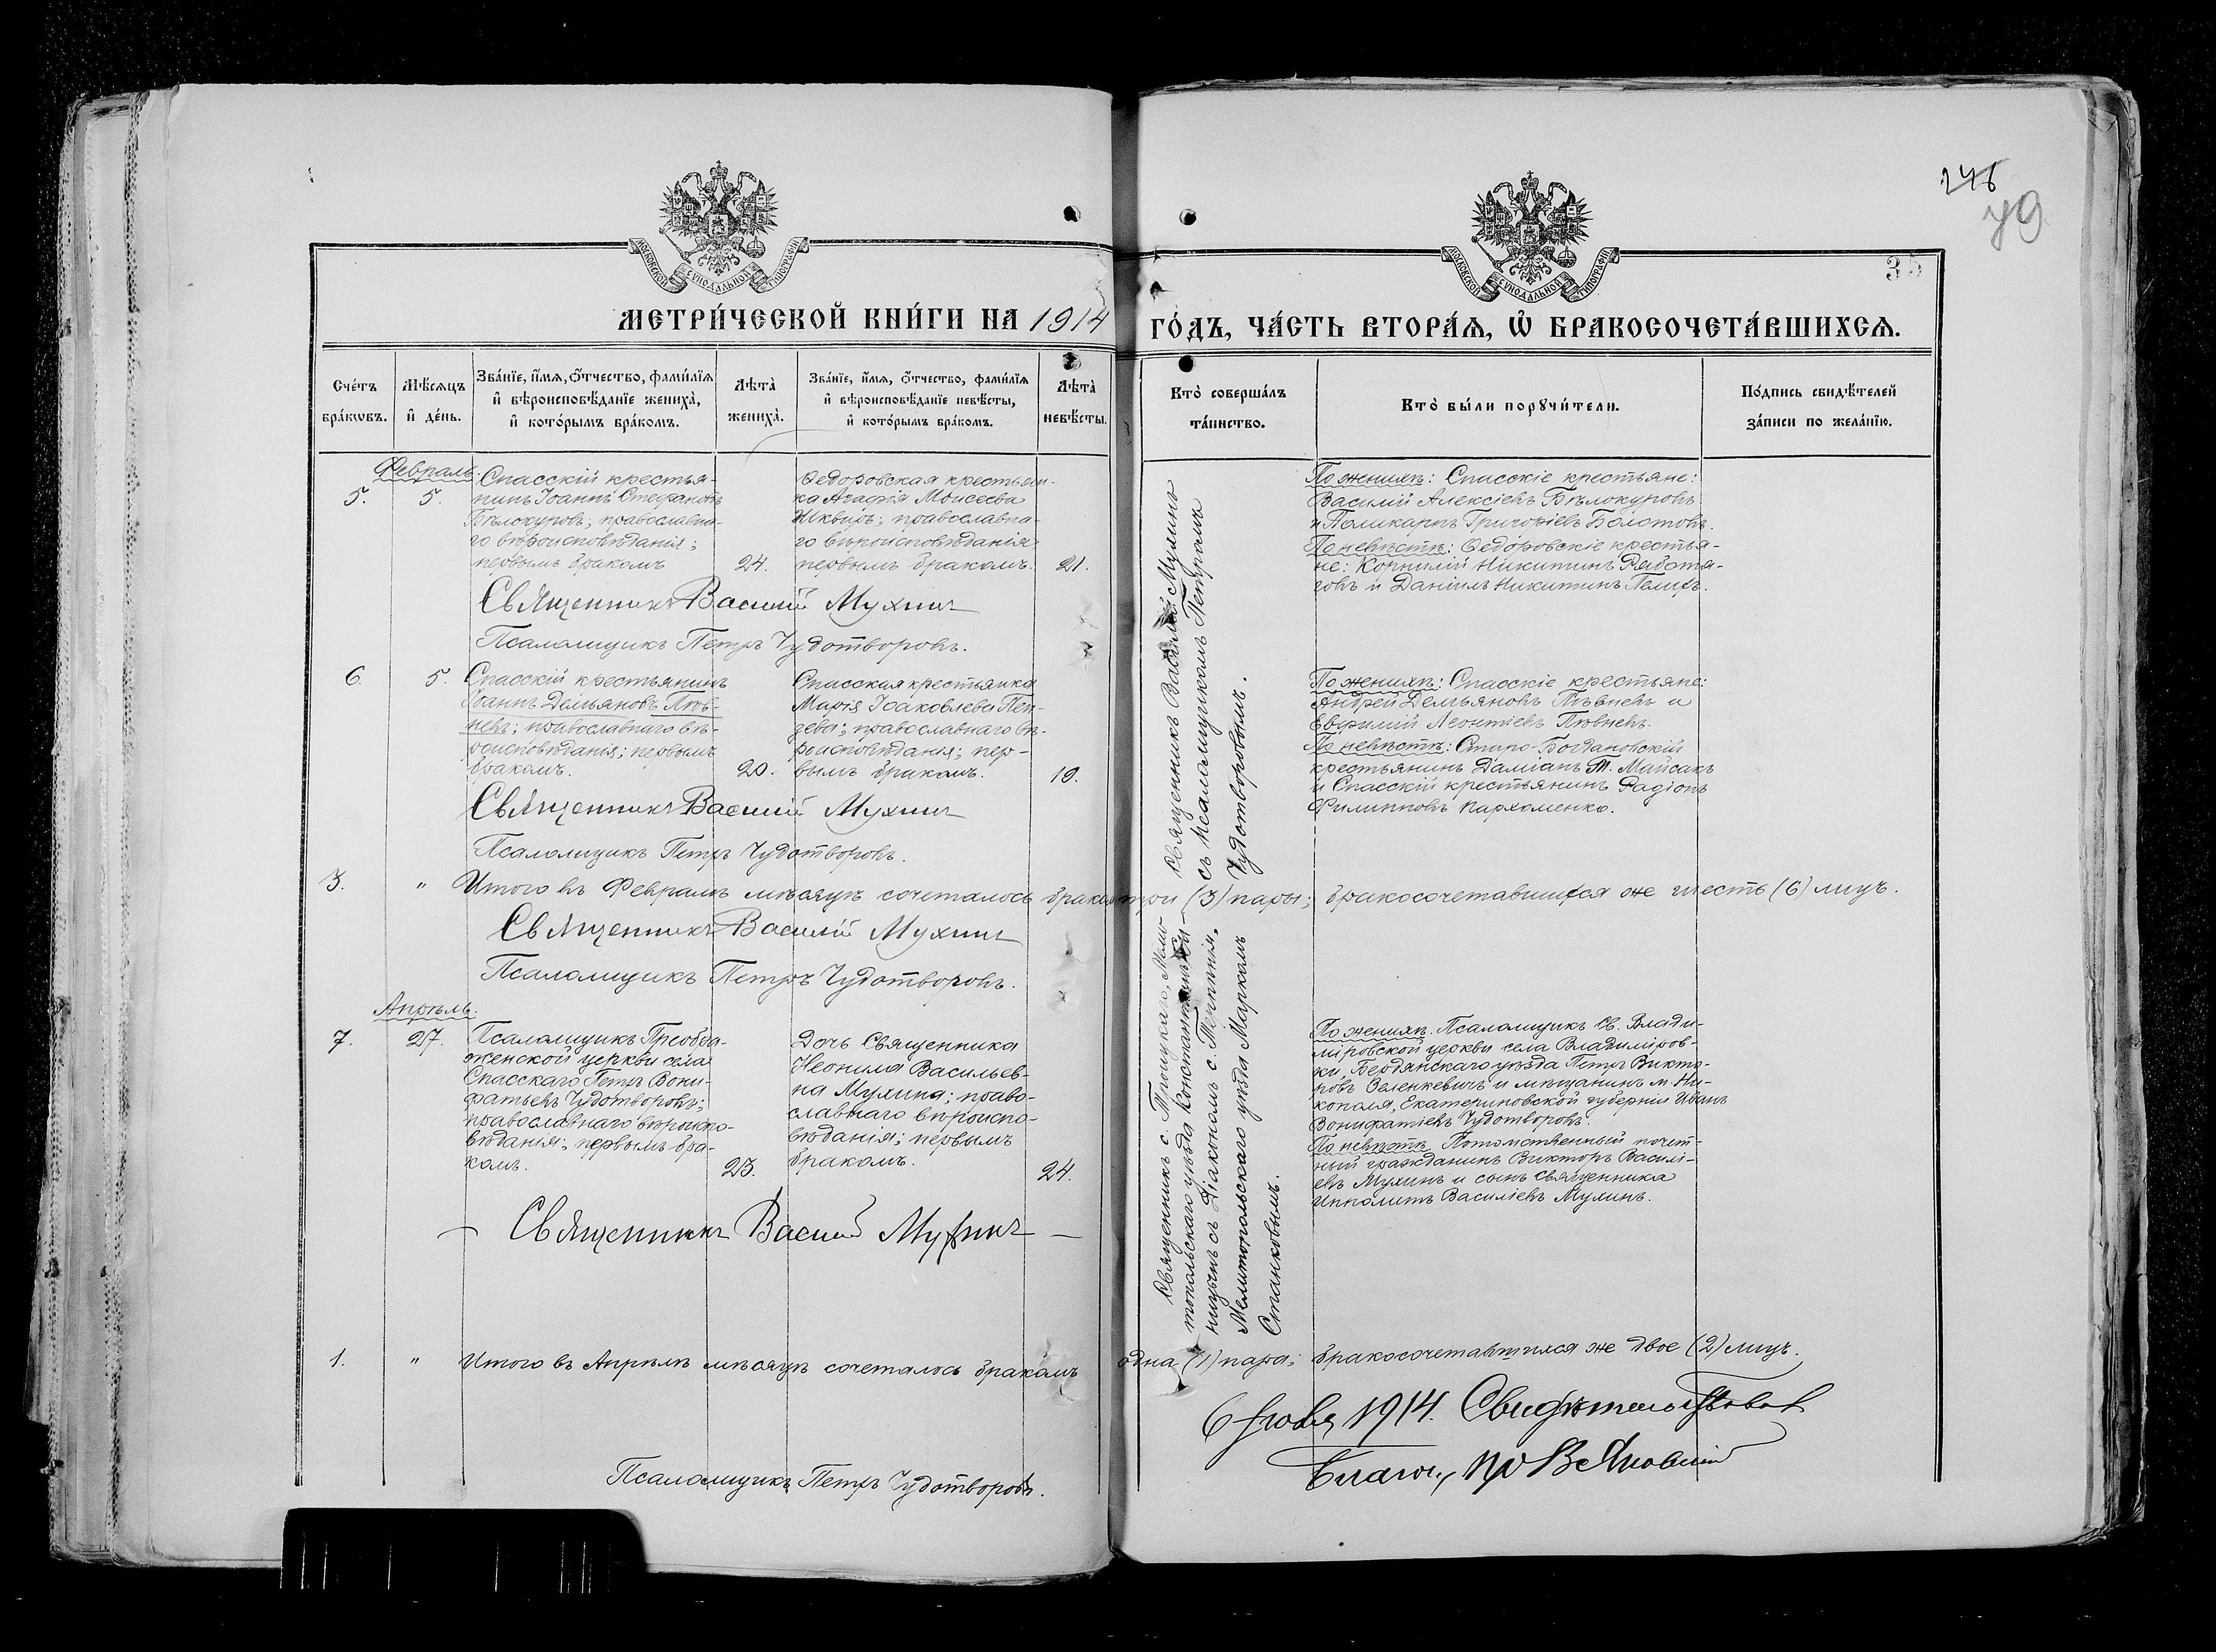 246
79
35
МОСКОВСКОЙ СУНОДАЛЬНОЙ ТИПОГРАФІИ
МОСКОВСКОЙ СУНОДАЛЬНОЙ ТИПОГРАФІИ
МЕТРИ́ЧЕСКОЙ КНИ́ГИ НА 1914 ГО́ДЪ, ЧА́СТЬ ВТОРА́Ѧ, Ѡ҆ БРАКОСОЧЕТА́ВШИХСѦ.
Сче́тъ бра́кѡвъ.
Мѣ́сѧцъ и҆ де́нь.
Зва́нїе, и҆́мѧ, ѻ҆́тчество, фами́лїѧ
и҆ вѣроисповѣ́данїе жениха̀,
и҆ кото́рымъ бра́комъ.
Лѣта̀ жениха̀.
Зва́нїе, и҆́мѧ, ѻ҆́тчество, фами́лїѧ
и҆ вѣроисповѣ́данїе невѣ́сты,
и҆ кото́рымъ бра́комъ.
Лѣта̀ невѣ́сты.
Кто̀ соверша́лъ та́инство.
Кто̀ бы́ли порꙋчи́тели.
По́дпись свидѣ́телей
за́писи по жела́нїю.
Февраль.
5. 5.
Спасскій крестья-
нинъ Іоаннъ Стефановъ
Бѣлокуровъ; православна-
го вѣроисповѣданія;
первымъ бракомъ
24.
Ѳедоровская крестьян-
ка Агафія Моисеева
Шквирь; православна-
го вѣроисповѣданія
первымъ бракомъ.
21.
Священникъ Василій Мухинъ
съ псаломщикомъ Петромъ
Чудотворовымъ.
По женихѣ: Спасскіе крестьяне:
Василій Алексіевъ Бѣлокуровъ
и Поликарпъ Григоріевъ Болотовъ.
По невѣстѣ: Ѳедоровскіе крестья-
не: Корнилій Никитинъ
и Даніилъ Никитинъ
Священникъ Василій Мухинъ
Псаломщикъ Петръ Чудотворовъ.
6. 5.
Спасскій крестьянинъ
Іоаннъ Демьяновъ Пѣв-
невъ; православнаго вѣ-
роисповѣданія; первымъ
бракомъ.
20.
Спасская крестьянка
Марія Іоаковлева Пен-
зева; православнаго вѣ-
роисповѣданія; пер-
вымъ бракомъ.
19.
По женихѣ: Спасскіе крестьяне:
Андрей Демьяновъ Пѣвневъ и
Евфимій Леонтіевъ Пѣвневъ.
По невѣстѣ: Старо-Богдановскій
крестьянинъ Даміанъ Т. Майсакъ
и Спасскій крестьянинъ Радіонъ
Филипповъ Пархоменко.
Священникъ Василій Мухинъ
Псаломщикъ Петръ Чудотворовъ.
3. " Итого въ Февралѣ мѣсяцѣ сочеталось бракомъ три (3) пары; бракосочетавшихся же шесть (6) лицъ.
Священникъ Василій Мухинъ
Псаломщикъ Петръ Чудотворовъ.
Апрѣль.
7. 27.
Псаломщикъ Преобра-
женской церкви села
Спасскаго Петръ Вони-
фатьевъ Чудотворовъ;
православнаго вѣроиспо-
вѣданія; первымъ бра-
комъ.
23.
Дочь Священника
Неонила Васильев-
на Мухина; право-
славнаго вѣроиспо-
вѣданія; первымъ
бракомъ.
24.
Священникъ с. Троицкаго, Мели-
топольскаго уѣзда Константинъ
съ Діакономъ с.
Мелитопольскаго уѣзда Маркомъ
Станковымъ.
По женихѣ. Псаломщикъ Св. Влади-
міровской церкви села Владиміров-
ки, Бердянскаго уѣзда Петръ Викто-
ровъ Зеленкевичъ и мѣщанинъ м. Ни-
кополя, Екатериновской губерніи Иванъ
Вонифатіевъ Чудотворовъ.
По невѣстѣ Потомственный почет-
ный гражданинъ Викторъ Василі-
евъ Мухинъ и сынъ Священника
Ипполитъ Василіевъ Мухинъ.
Священникъ Василій Мухинъ
1. " Итого въ Апрѣлѣ мѣсяцѣ сочеталось бракомъ одна (1) пара; бракосочетавшихся же двое (2) лицъ.
Псаломщикъ Петръ Чудотворовъ.
1914. Свидѣтельствовал